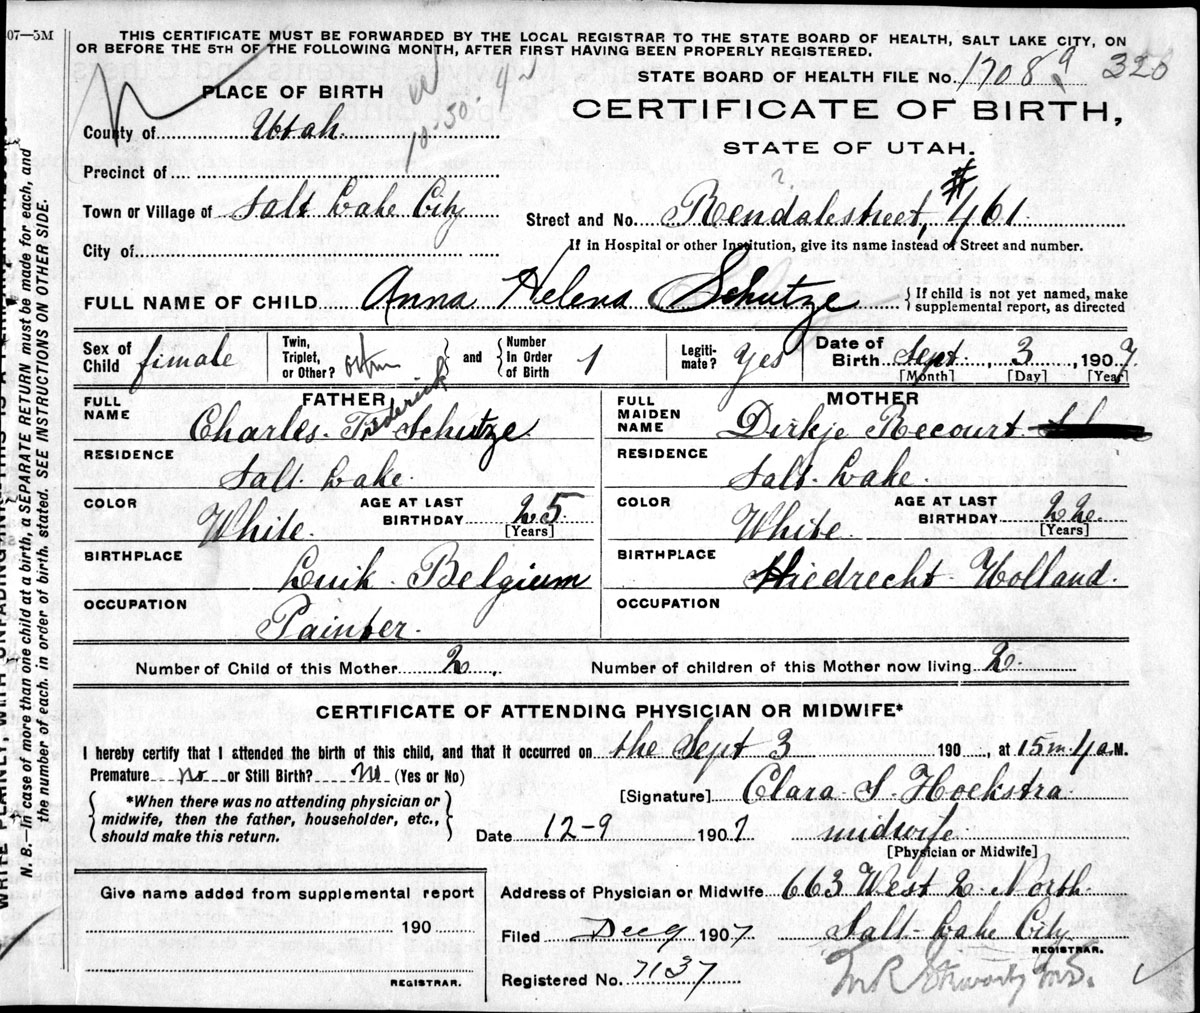 07—5M
THIS CERTIFICATE MUST BE FORWARDED BY THE LOCAL REGISTRAR TO THE STATE BOARD OF HEALTH, SALT LAKE CITY, ON
OR BEFORE THE 5TH OF THE FOLLOWING MONTH, AFTER FIRST HAVING BEEN PROPERLY REGISTERED.
STATE BOARD OF HEALTH FILE No. 17089 326
PLACE OF BIRTH
10-30
CERTIFICATE OF BIRTH,
STATE OF UTAH.
County of Utah.
Precinct of
Town or Village of Salt Lake City
City of
Street and No. Rendalestreet, #461.
?
If in Hospital or other Institution, give its name instead of Street and number.
FULL NAME OF CHILD Anna Helena Schutze
{If child is not yet named, make
supplemental report, as directed
Sex of Child fimale
Twin, Triplet, or Other?
and
Number In Order of Birth 1
Legitimate? Yes
Date of Birth Sept. 3, 1907
[Month] [Day] [Year]
FATHER
FULL NAME Charles. Frederick Schutze.
RESIDENCE Salt. Lake.
COLOR White.
AGE AT LAST BIRTHDAY 25
[Years]
BIRTHPLACE Luik. Belgium
OCCUPATION Painter.
MOTHER
FULL MAIDEN NAME Dirkje Recourt
RESIDENCE Salt. Lake.
COLOR White.
AGE AT LAST BIRTHDAY 22.
[Years]
BIRTHPLACE Holland.
OCCUPATION
Number of Child of this Mother 2.
Number of children of this Mother now living 2.
CERTIFICATE OF ATTENDING PHYSICIAN OR MIDWIFE*
I hereby certify that I attended the birth of this child, and that it occurred on the Sept 3 190 , at 15 m 4 a.M.
Premature no or Still Birth? No (Yes or No)
{*When there was no attending physician or
midwife, then the father, householder, etc.,
should make this return.}
[Signature] Clara S. Hoekstra.
Date 12-9 1907
midwife
[Physician or Midwife]
Give name added from supplemental report
190
REGISTRAR.
Address of Physician or Midwife 663 West 2 North.
Filed Dec 9 1907
Salt-Lake City
REGISTRAR.
Registered No. 7137
WRITE PLAINLY, WITH UNFADING INK—THIS IS A PERMANENT RECORD
N. B.—In case of more than one child at a birth, a SEPARATE RETURN must be made for each, and
the number of each, in order of birth, stated. SEE INSTRUCTIONS ON OTHER SIDE.